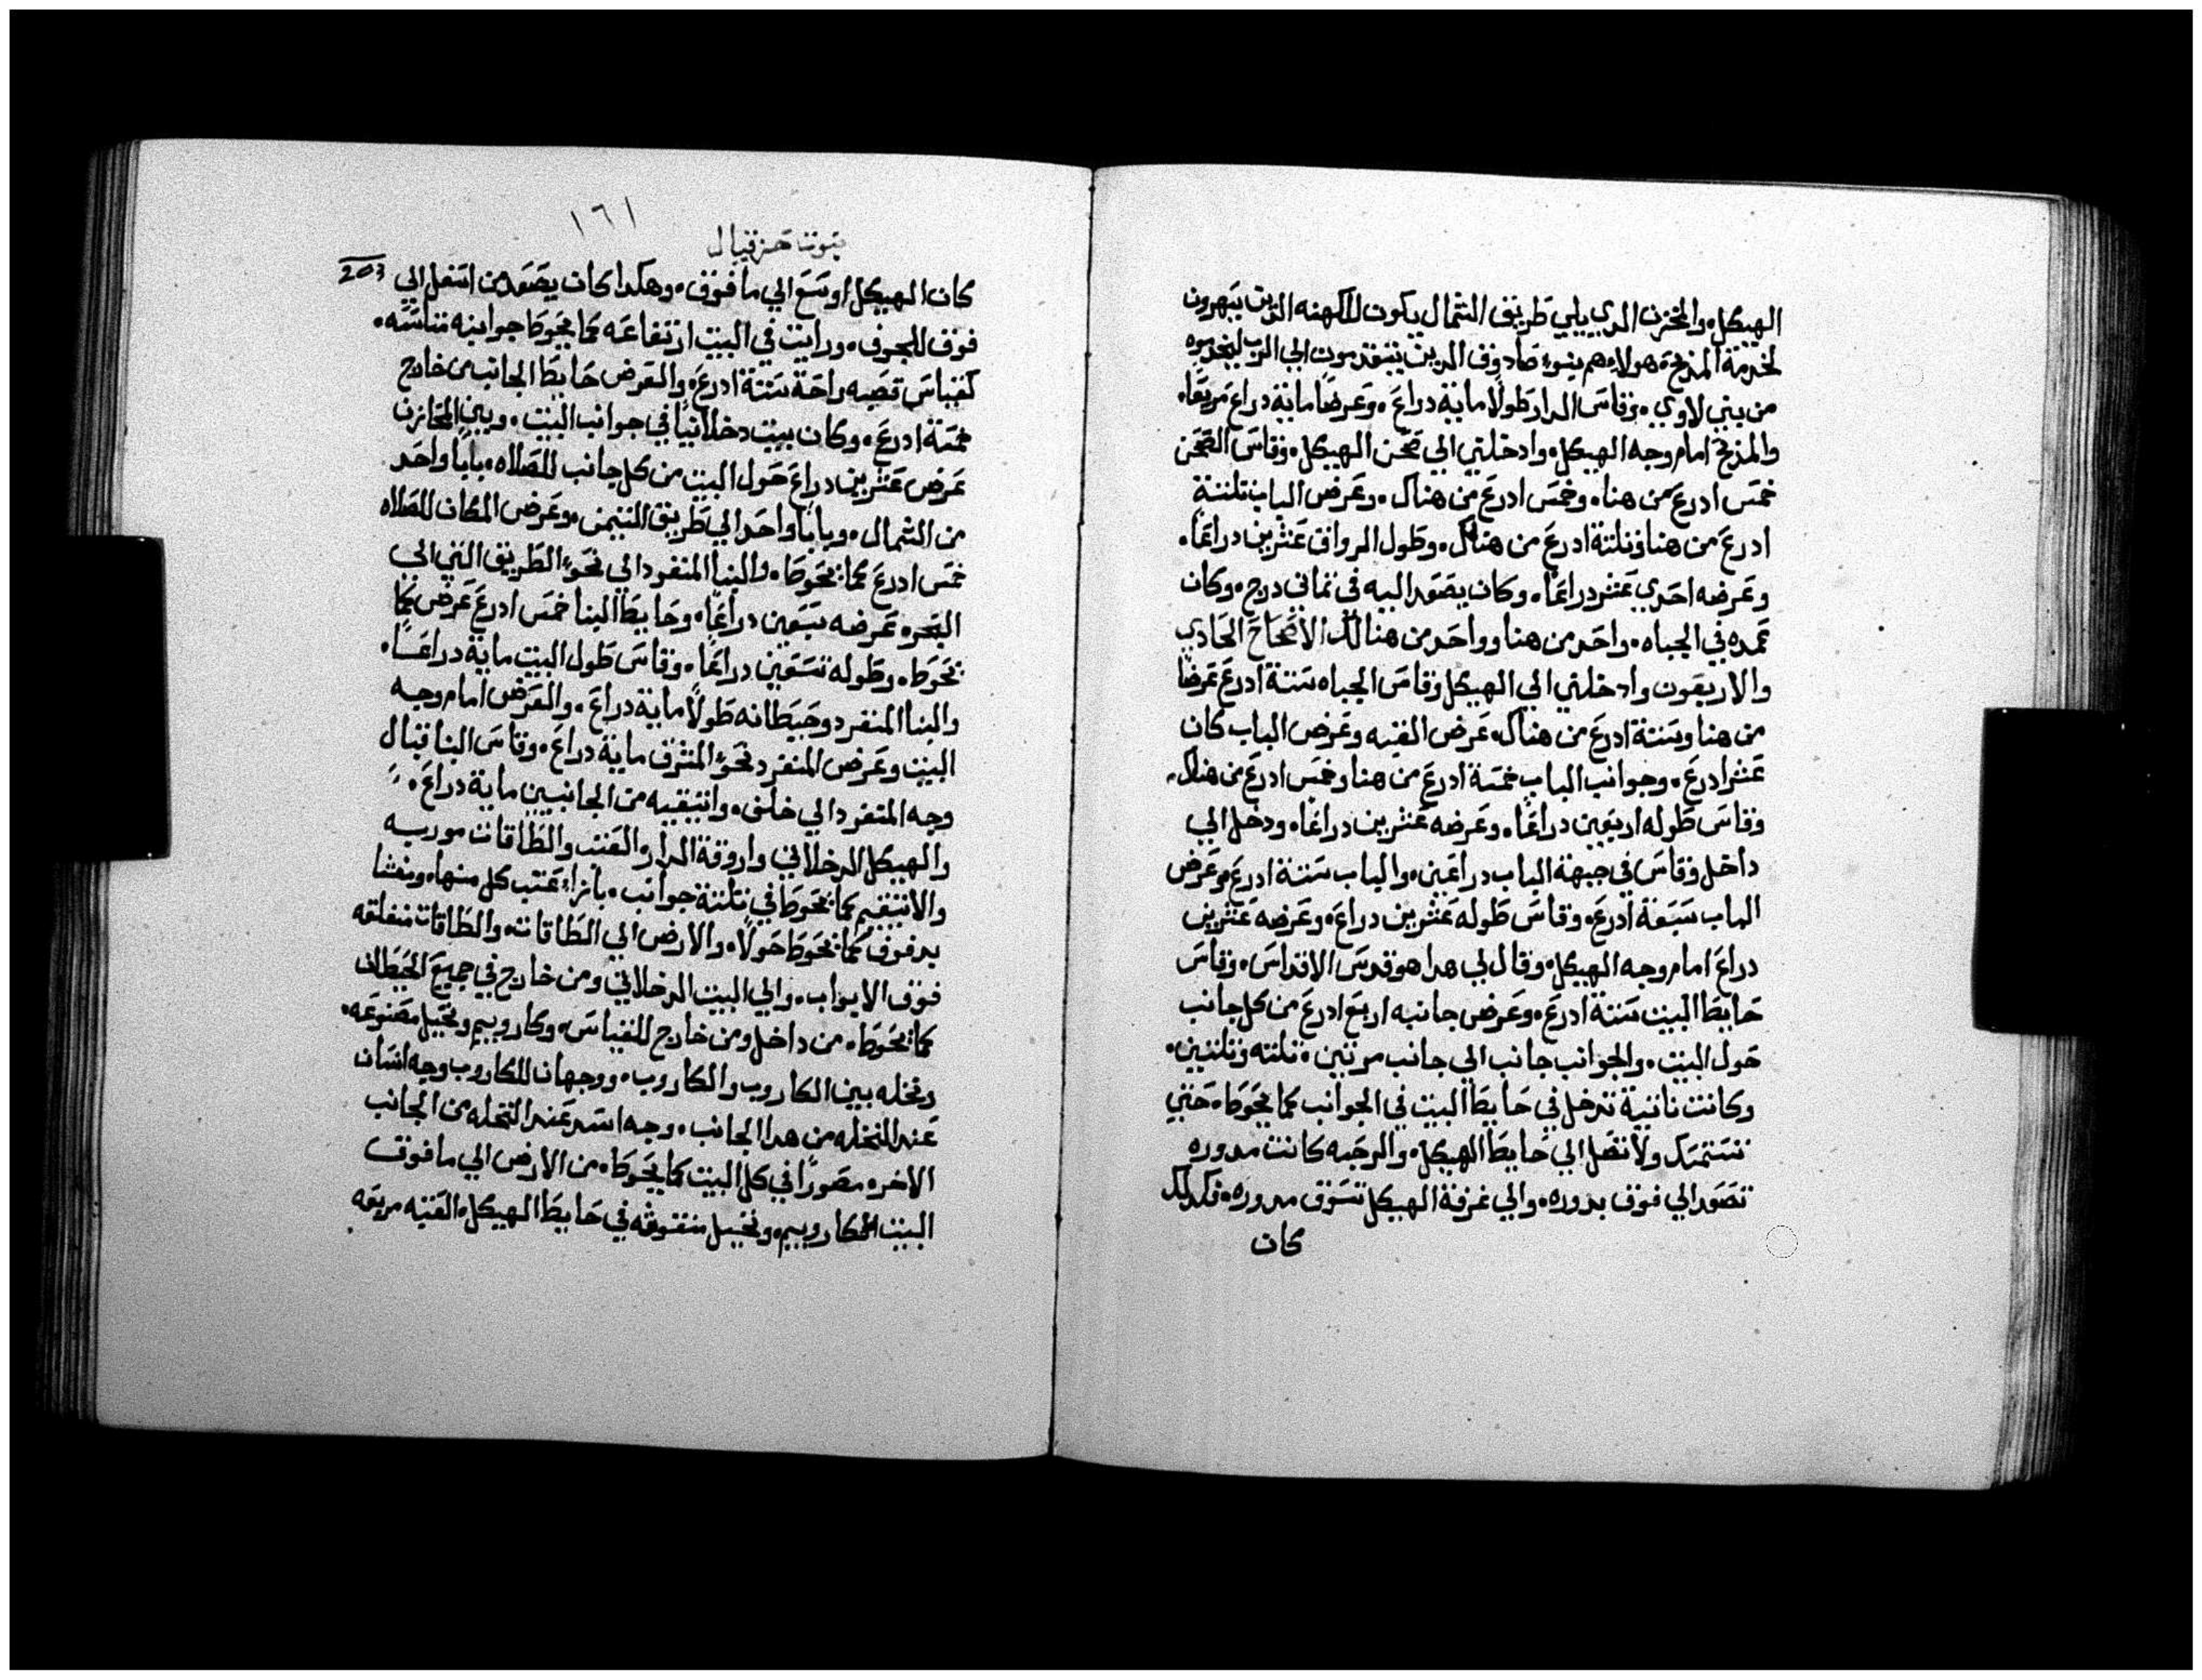 الهيكل. والمخزن الدي يلي طريق الشمال يكون للكهنه الدين يسهرون
لخدمة المذبح. هولاء هم بنوا صادوق الدين يتقدمون الي الرب ليخدموه
من بني لاوي. وقاس الدار طولاً ماية دراع. وعرضاً ماية دراع مربعاً.
والمدبح امام وجه الهيكل. وادخلني الي صحن الهيكل. وقاس الصحن
خمس ادرع من هنا. وخمس ادرع من هناك. وعرض الباب تلتة
ادرع من هنا وتلتة ادرع من هناك. وطول الرواق عشرين دراعاً.
وعرضه احدي عشر دراعاً. وكان يصعد اليه في تماني درج. وكان
عمده في الجباه. واحد من هنا وواحد من هناك الاصحاح الحادي
والاربعون وادخلني الي الهيكل وقاس الجباه ستة ادرع عرضاً
من هنا وستة ادرع من هناك. عرض القبه وعرض الباب كان
عشر ادرع. وجوانب الباب خمسة ادرع من هنا وخمس ادرع من هناك.
وقاس طوله اربعين دراعاً. وعرضه عشرين دراعاً. ودخل الي
داخل وقاس في جبهة الباب دراعين. والباب ستة ادرع وعرض
الباب سبعة ادرع. وقاس طوله عشرين دراع. وعرضه عشرين
دراع امام وجه الهيكل. وقال لي هدا هو قدس الاقداس. وقاس
حايط البيت ستة ادرع. وعرض جانبه اربع ادرع من كل جانب
حول البيت. والجوانب جانب الي جانب مرتين. تلته وتلتين.
وكانت ناتية تدخل في حايط البيت في الجوانب كما يحوط. حتي
تستمسك ولا تصل الي حايط الهيكل. والرحبه كانت مدوره
تصعد الي فوق بدوره. والي غرفة الهيكل تسوق مدوره. فكدلك
كان
١٦١
نبوت حزقيال
203
كان الهيكل اوسع الي ما فوق. وهكدا كان يصعد من اسفل الي
فوق للجوف. ورايت في البيت ارتفاعه كما يحوط جوانبه متاسسه.
كقياس قصبه واحة ستة ادرع. والعرض حايط الجانب من خارج
خمسة ادرع. وكان بيت دخلانياً في جوانب البيت. وبين المخازن
عرض عشرين دراع حول البيت من كل جانب للصلاه. باباً واحد
من الشمال. وباباً واحد الي طريق التيمن. وعرض المكان للصلاه
خمس ادرع كما يحوط. والبنا المنفرد الي نحو الطريق التي الي
البحر. عرضه سبعين دراعاً. وحايط البنا خمس ادرع عرض كما
يحوط. وطوله تسعين دراعاً. وقاس طول البيت ماية دراعاً.
والبنا المنفرد وحيطانه طولاً ماية دراع. والعرض امام وجه
البيت وعرض المنفرد نحو المشرق ماية دراع. وقاس البنا قبال
وجه المتفرد الي خلف. وانتيقيه من الجانبين ماية دراع.
والهيكل الدخلاني واروقة الدار والعتب والطاقات موربه
والانتيقيم كما تحوط في تلتة جوانب. بازاء عتب كل منها. ومغشا
بدفوف كما تحوط حولاً. والارض الي الطاقات. والطاقات منغلقه
فوق الابواب. والي البيت الدخلاني ومن خارج في جميع الحيطان
كما تحوط. من داخل ومن خارج للقياس. وكاروبيم ونخيل مصنوعه.
ونخله بين الكاروب والكاروب. ووجهان للكاروب وجه انسان
عند النخله من هدا الجانب. وجه اسد عند النخله من الجانب
الاخر. مصوراً في كل البيت كما يحوط. من الارض الي ما فوق
البيت الكاروبيم. ونخيل منقوشه في حايط الهيكل. العتبه مربعه